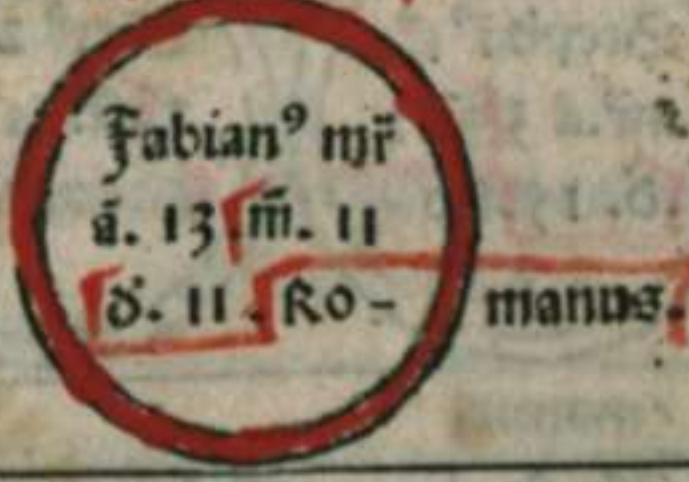 Fabianꝰ mr̄
ā. 13 .m̄. 11
d. 11 . Ro- manus.